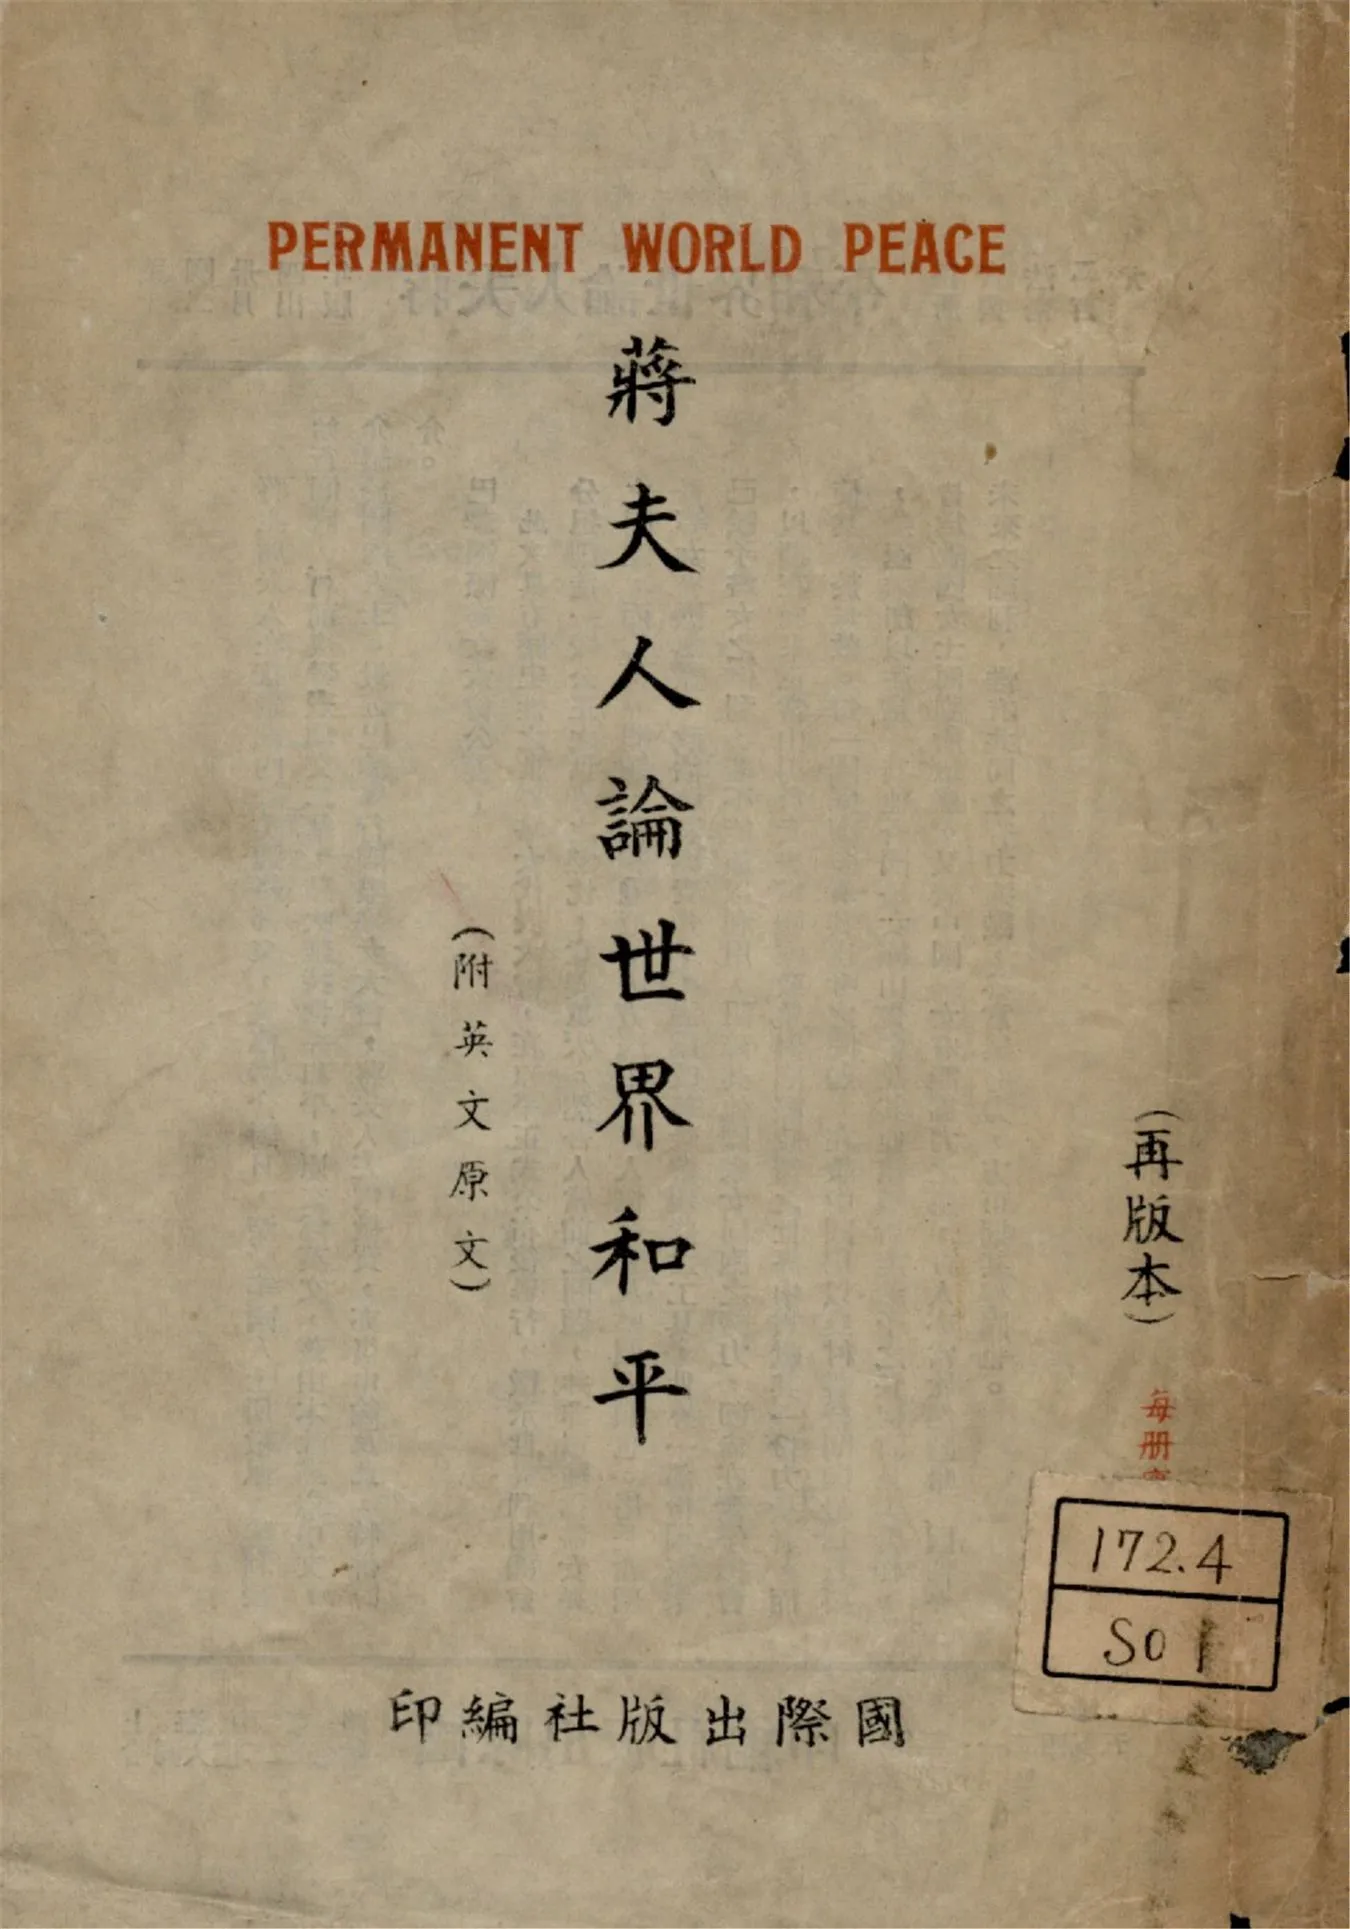 PERMANENT WORLD PEACE
蔣夫人論世界和平
(附英文原文)
(再版本)
每册
172.4
SO
國際出版社編印